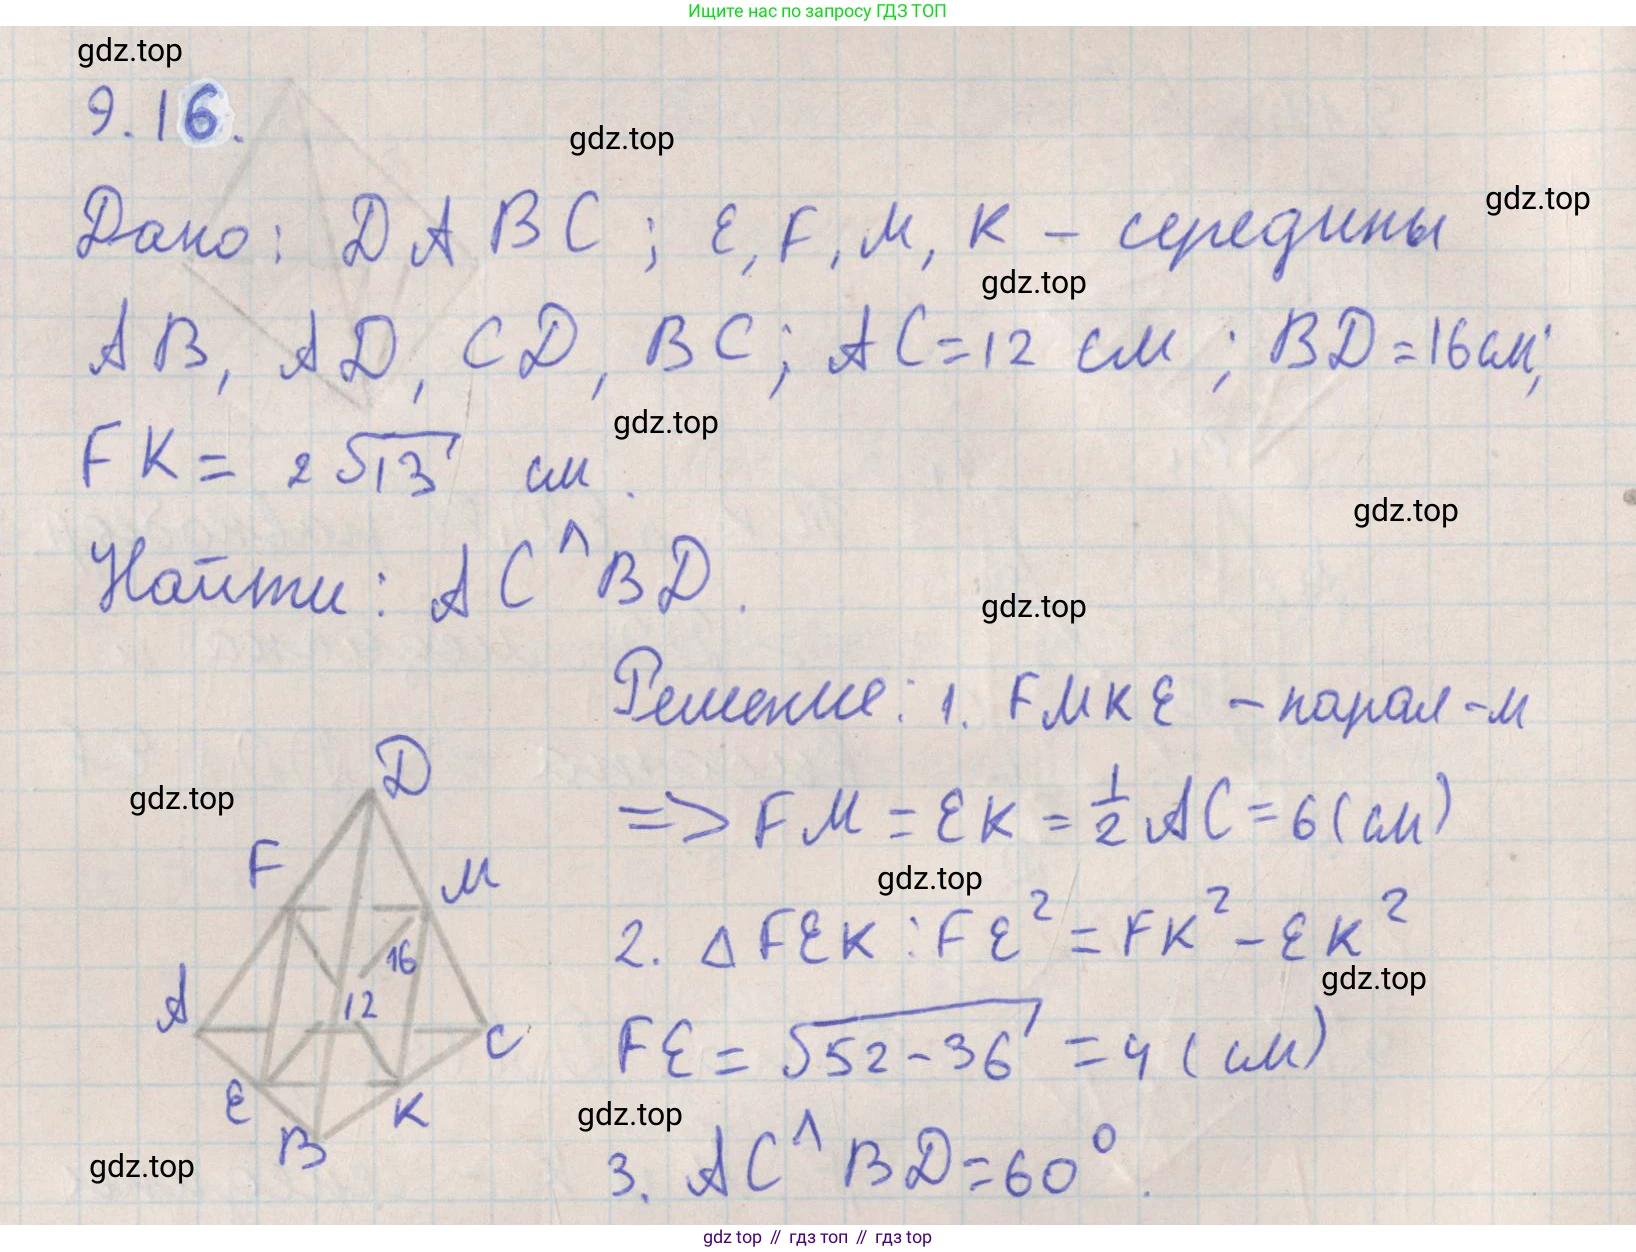 Ищите нас по запросу ГДЗ ТОП
gdz.top
9.16.
gdz.top
gdz.top
Дано: DABC; E, F, M, K – середины
gdz.top
AB, AD, CD, BC; AC=12 см; BD=16см;
gdz.top
FK = 2√13 см.
gdz.top
Найти: AC^BD.
gdz.top
Решение: 1. FMKE – парал-м
gdz.top
=> FM = EK = 1/2 AC = 6(см)
gdz.top
2. △FEK: FE² = FK² – EK²
gdz.top
FE = √52-36 = 4 (см)
gdz.top
3. AC^BD=60°.
gdz.top
D
F
M
16
12
A
C
E
K
B
gdz top // гдз топ // gdz top